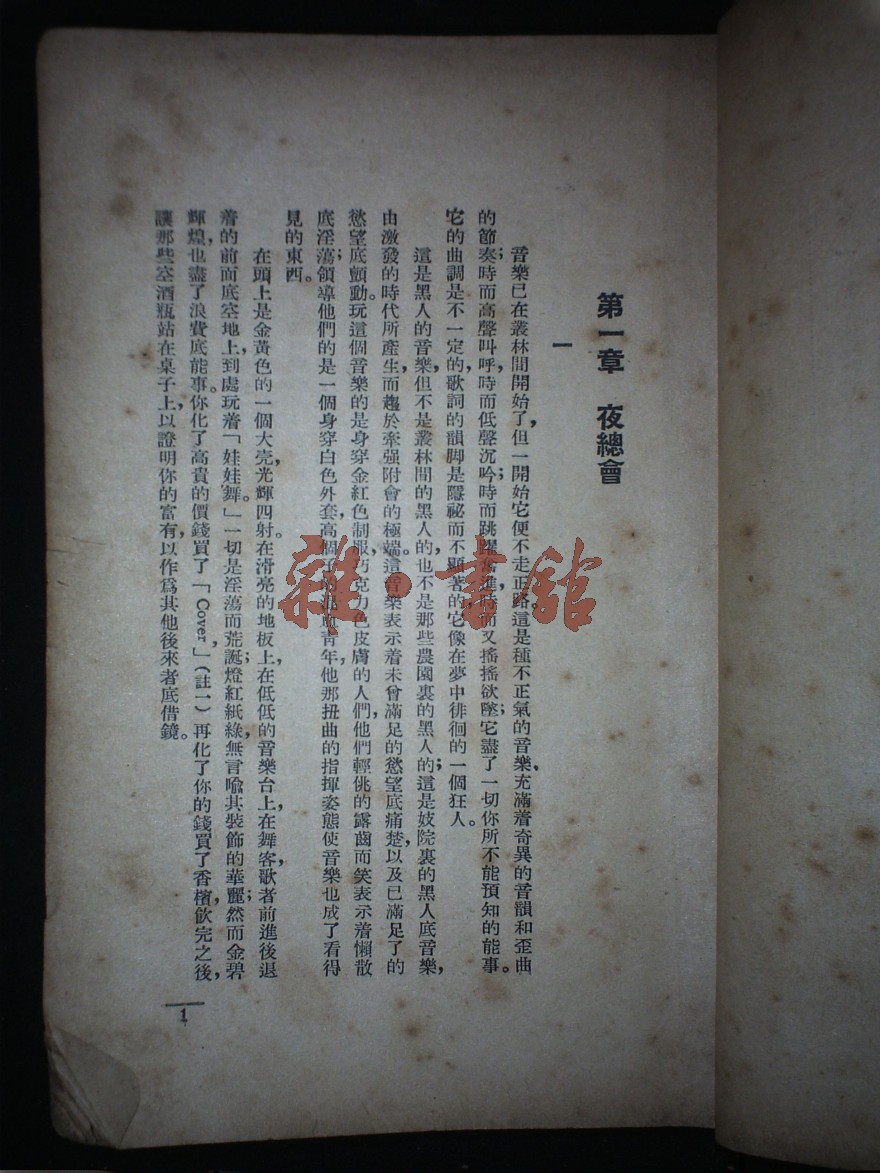 第一章　夜總會
一
音樂已在叢林間開始了，但一開始它便不走正路。這是種不正氣的音樂、充滿着奇異的音韻和歪曲
的節奏；時而高聲叫呼，時而低聲沉吟；時而跳躍奮進，時而又搖搖欲墜；它盡了一切你所不能預知的能事。
它的曲調是不一定的，歌詞的韻脚是隱祕而不顯著的，它像在夢中徘徊的一個狂人。
這是黑人的音樂，但不是叢林間的黑人的，也不是那些農園裏的黑人的；這是妓院裏的黑人底音樂，
由激發的時代所產生，而趨於牽强附會的極端。這音樂表示着未曾滿足的慾望底痛楚，以及已滿足了的
慾望底顫動。玩這個音樂的是身穿金紅色制服，巧克力色皮膚的人們，他們輕佻的露齒而笑表示着懶散
底淫蕩；領導他們的是一個身穿白色外套，高個子的混血青年，他那扭曲的指揮姿態使音樂也成了看得
見的東西。
在頭上是金黃色的一個大亮，光輝四射。在滑亮的地板上，在低低的音樂台上，在舞客歌者前進後退
着的前面底空地上，到處玩着「娃娃舞。」一切是淫蕩而荒誕；燈紅紙綠，無言喻其裝飾的華麗；然而金碧
輝煌，也盡了浪費底能事。你化了高貴的價錢買了「Cover」（註一）再化了你的錢買了香檳，飲完之後，
讓那些空酒瓶站在桌子上，以證明你的富有，以作爲其他後來者底借鏡。
1
雜·書舘